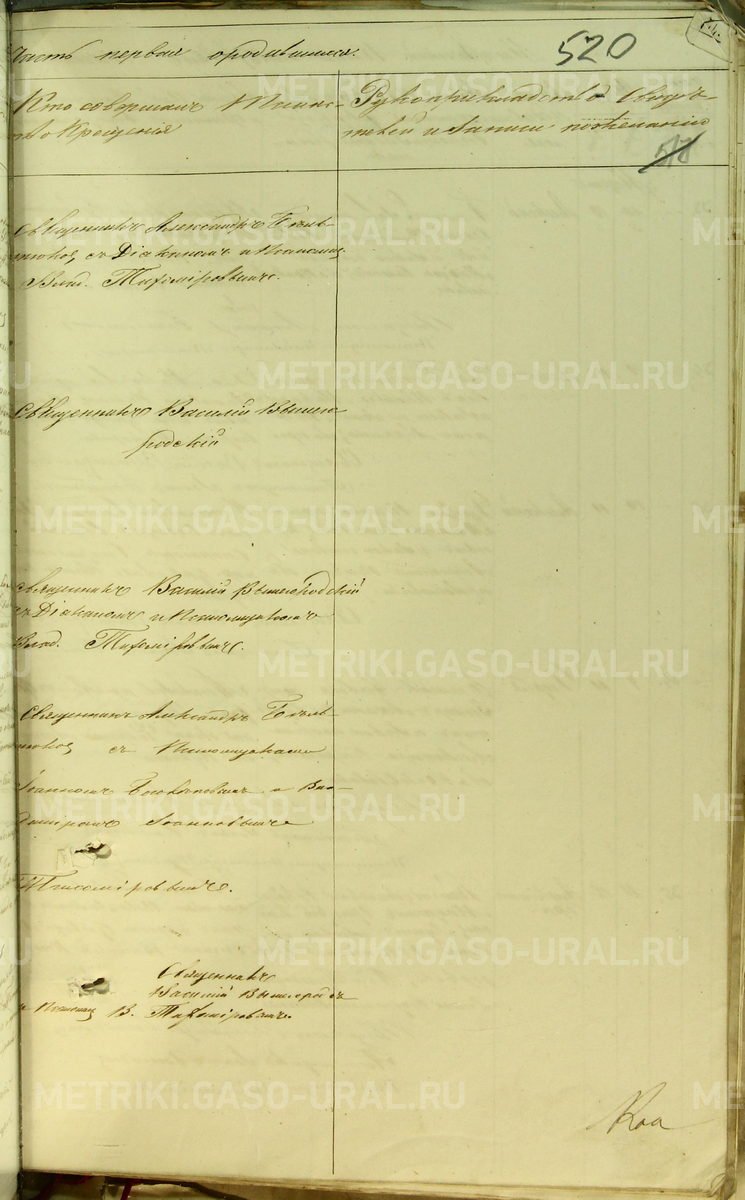 Часть первая о родившихся.
520
Кто совершалъ Таинс-
тво Крещенія
Рукоприкладство Свидѣ-
телей и записи по желанію
518
Священникъ Александръ
съ Діакономъ и Псаломщ.
Влад. Тихоміровымъ.
Священникъ Василій Вышего
родскій
Священникъ Василій Вышегородскій
съ Діакономъ и Псаломщикомъ
Влад. Тихоміровымъ.
Священникъ Александръ
съ Псаломщиками
Іоанномъ и Вла-
диміромъ Іоанновымъ
Тихоміровымъ.
Священникъ
Василій Вышегородск
и Псаломщ В. Тихоміровымъ.
METRIKI.GASO-URAL.RU